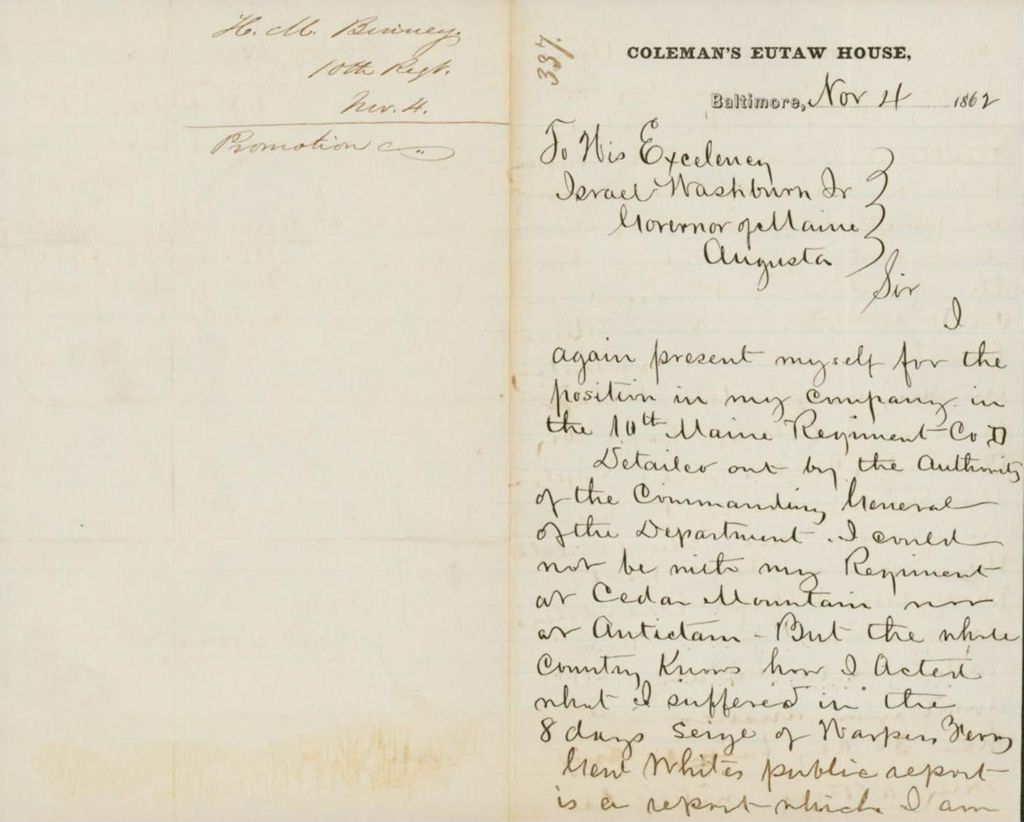 H. M. Binney
10th Regt.
Nov. 4.
Promotion
337.
COLEMAN'S EUTAW HOUSE,
Baltimore, Nov 4 1862
To His Excelency
Israel Washburn Jr
Governor of Maine
Augusta
Sir
I
again present myself for the
position in my company in
the 10th Maine Regiment Co D
Detailed out by the Authority
of the Commanding General
of the Department. I could
not be with my Regiment
at Cedar Mountain nor
at Antietam - But the whole
Country Knows how I Acted
what I suffered in the
8 days Seige of Harpers Ferry
Genl Whites public report
is a report which I am